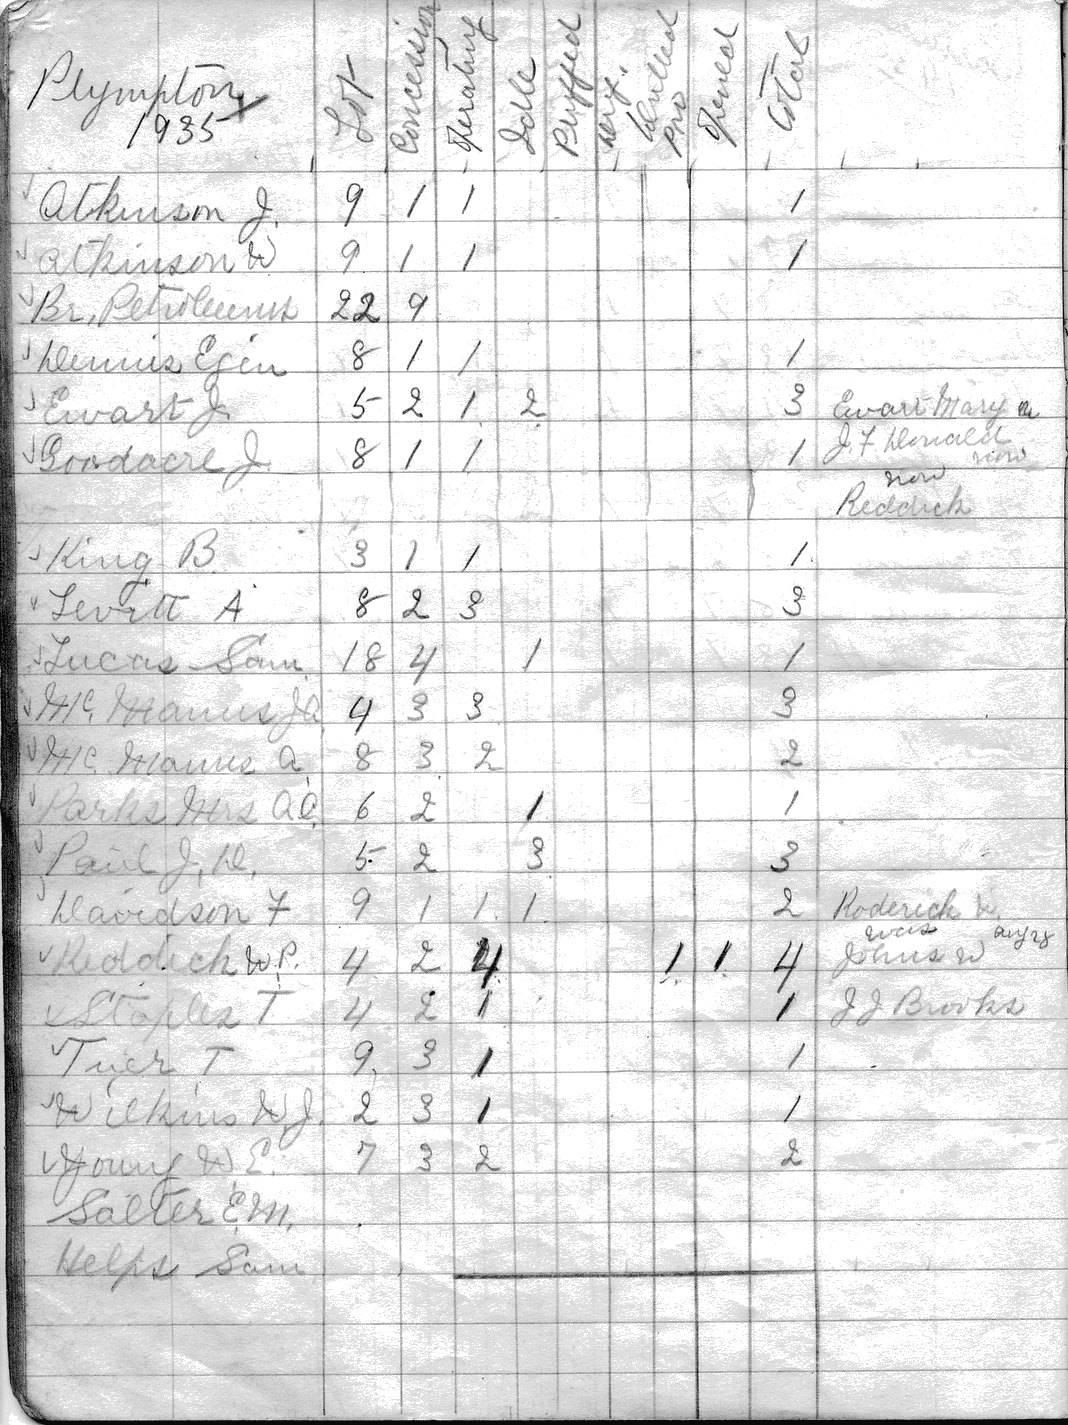 Plympton
1935
Lot Concession Operating Idle Pluffed Drilled pro Opened Total
Atkinson J. 9 1 1 1
Atkinson W 9 1 1 1
Br. Petroleums 22 9
Dennis Egin 8 1 1 1
Ewart J. 5 2 1 2 3 Ewart Mary
Goodacre J. 8 1 1 1 J. F. Donald
now
now
Reddick
King B. 3 1 1 1
Levitt A 8 2 3 3
Lucas Sam 18 4 1 1
Mc Manus J a 4 3 3 3
Mc Manus a 8 3 2 2
Parks Mrs A C. 6 2 1 1
Paul J. D. 5 2 3 3
Davidson F 9 1 1 1 2 Roderick
was
Reddick W.P. 4 2 4 1 1 4 Johns W
Staples T 4 2 1 1 J J Brooks
Tuer T 9 3 1 1
Wilkins W J. 2 3 1 1
Young W E. 7 3 2 2
Salter E.M.
Helps Sam